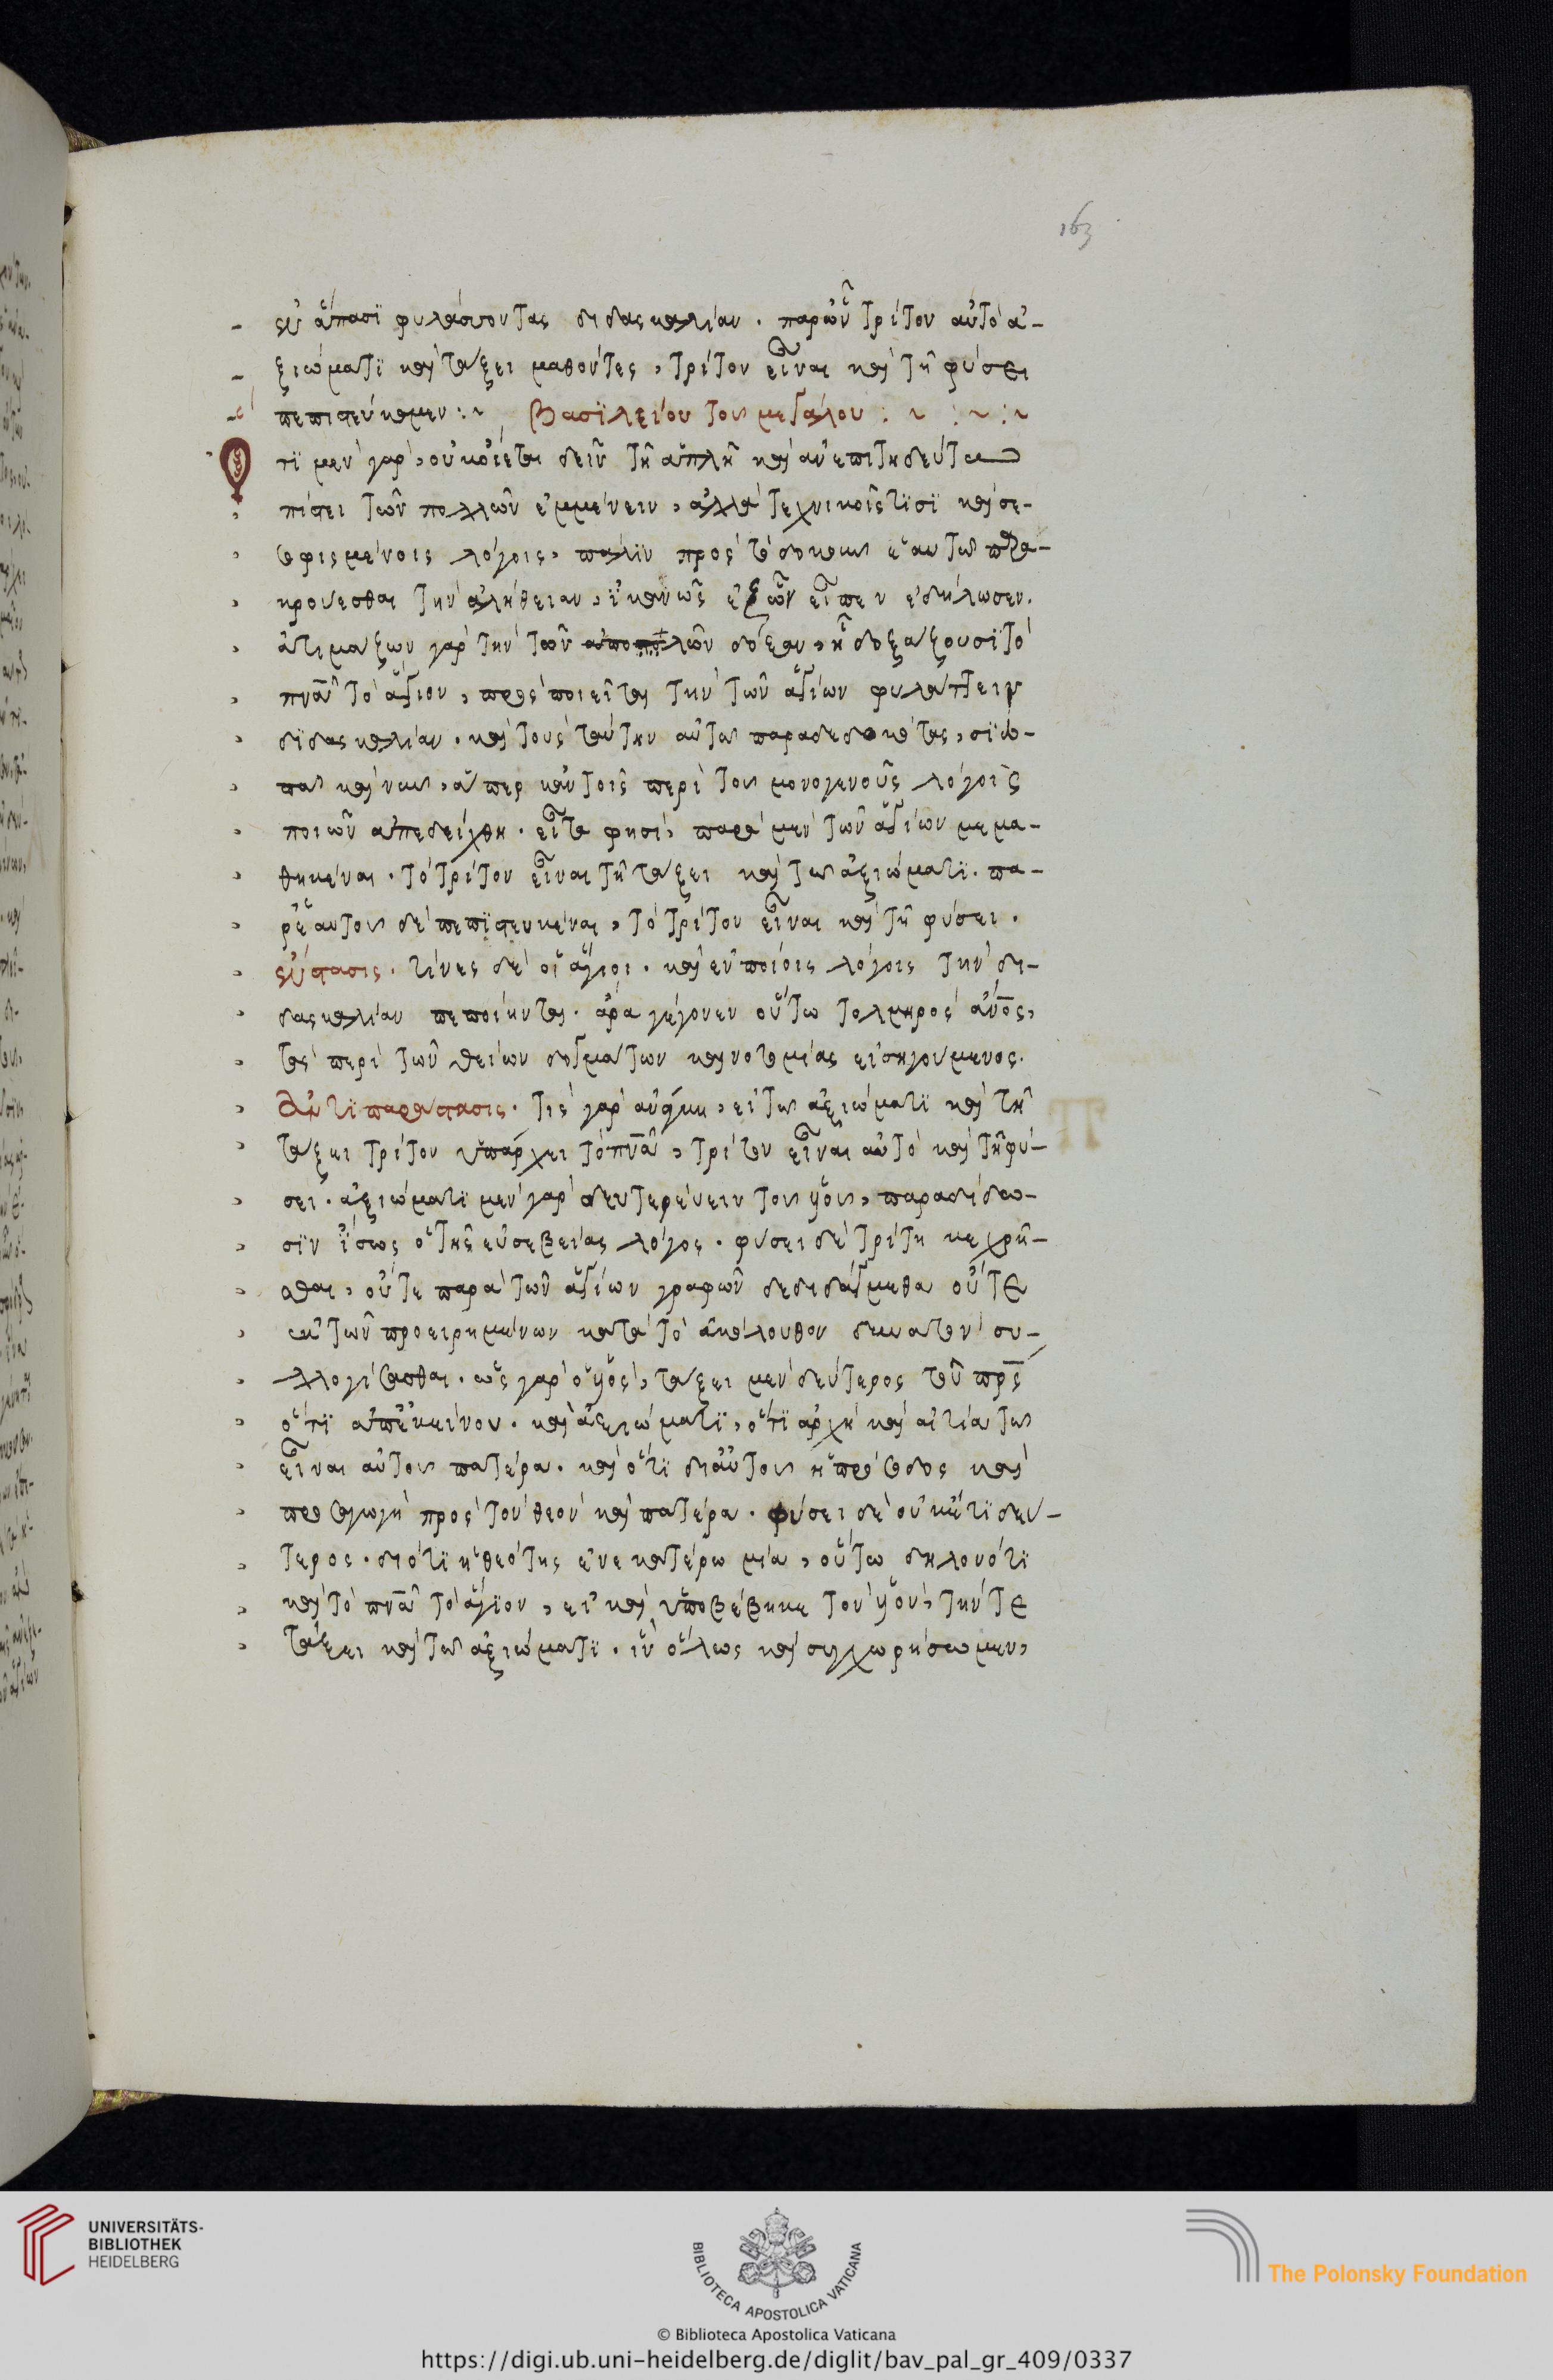 ἐν ἅπασϊ φυλάσσοντας διδασκαλίαν · παρ' ὧν τρίτον αὐτὸ ἀ-
ξιώματϊ καὶ τάξει μαθόντες, τρίτον εἶναι καὶ τῇ φύσει
πεπιστεύκαμεν :~ Βασϊλείου τοῦ μεγάλου : ~ : ~ : ~
Ὅτϊ μὲν γὰρ, οὐκ οἴεται δεῖν τῇ ἁπλῇ καὶ ἀνεπιτηδεύτω
πίστει τῶν πολλῶν ἐμμένειν, ἀλλὰ τεχνικοῖς τϊσϊ καὶ σε-
σοφισμένοις λόγοις, πάλϊν πρὸς τὸ δοκοῦν ἑαυτῶ παρα-
κρούεσθαι τὴν ἀλήθειαν, ἱκανῶς ἐξ ὧν εἶπεν ἐδήλωσεν.
ἀτιμάζων γὰρ τὴν τῶν ἀπο πολλῶν δόξαν, ἣ δοξάζουσϊ τὸ
πνᾶ τὸ ἅγιον, προσποιεῖται τὴν τῶν ἁγίων φυλάττειν
δϊδασκαλίαν · καὶ τοὺς ταύτην αὐτῶ παραδεδοκότας, σϊω-
πᾶ καὶ νῦν, ἅπερ κἀν τοῖς περὶ τοῦ μονογενοῦς λόγοις
ποιῶν ἀπεδείχθη · εἶτα φησὶ, παρὰ μὲν τῶν ἁγίων μεμα-
θηκέναι · τὸ τρίτον εἶναι τῇ τάξει καὶ τῶ ἀξιώματϊ · πα-
ρ' ἑαυτοῦ δὲ πεπϊστευκέναι, τὸ τρίτον εἶναι καὶ τῇ φύσει ·
ἔνστασις · τίνες δὲ οἱ ἅγιοι · καὶ ἐν ποίοις λόγοις τὴν δι-
δασκαλίαν πεποίηνται · ἆρα γέγονεν οὕτω τολμηρὸς ἄνος,
τὰς περὶ τῶν θείων δογμάτων καινοτομίας εἰσηγούμενος.
Ἀντϊπαράστασις · τίς γὰρ ἀνάγκη, εἰ τῶ ἀξιώματϊ καὶ τῇ
τάξει τρίτον ὑπάρχει τὸ πνᾶ, τρίτον εἶναι αὐτὸ καὶ τῇ φύ-
σει · ἀξιώματϊ μὲν γὰρ δευτερεύειν τοῦ ὑοῦ, παραδίδω-
σϊν ἴσως ὁ τῆς εὐσεβείας λόγος · φύσει δὲ τρίτη κεχρῆ-
σθαι, οὔτε παρὰ τῶν ἁγίων γραφῶν δεδιδάγμεθα οὔτε
ἐκ τῶν προειρημμένων κατὰ τὸ ἀκόλουθον δυνατὸν συ-
λλογίσασθαι · ὡς γὰρ ὁ ὑὸς, τάξει μὲν δεύτερος τοῦ πρς
ὅτϊ ἀπ' ἐκείνου · καὶ ἀξιώματϊ, ὅτϊ ἀρχὴ καὶ αἰτία τῶ
εἶναι αὐτοῦ πατέρα · καὶ ὅτϊ δι' αὐτοῦ ἡ πρόσοδος καὶ
προσαγωγὴ πρὸς τὸν θεὸν καὶ πατέρα · φύσει δὲ οὐκέτϊ δεύ-
τερος · διότϊ ἡ θεότης ἐν ἑκατέρω μία, οὕτω δηλονότϊ
καὶ τὸ πνᾶ τὸ ἅγϊον, εἰ καὶ ὑποβέβηκε τὸν ὑὸν, τήν τε
τάξει καὶ τῶ ἀξιώματϊ · ἵν' ὅλως καὶ συγχωρήσωμεν,
163
UNIVERSITÄTS-
BIBLIOTHEK
HEIDELBERG
BIBLIOTECA APOSTOLICA VATICANA
The Polonsky Foundation
© Biblioteca Apostolica Vaticana
https://digi.ub.uni-heidelberg.de/diglit/bav_pal_gr_409/0337